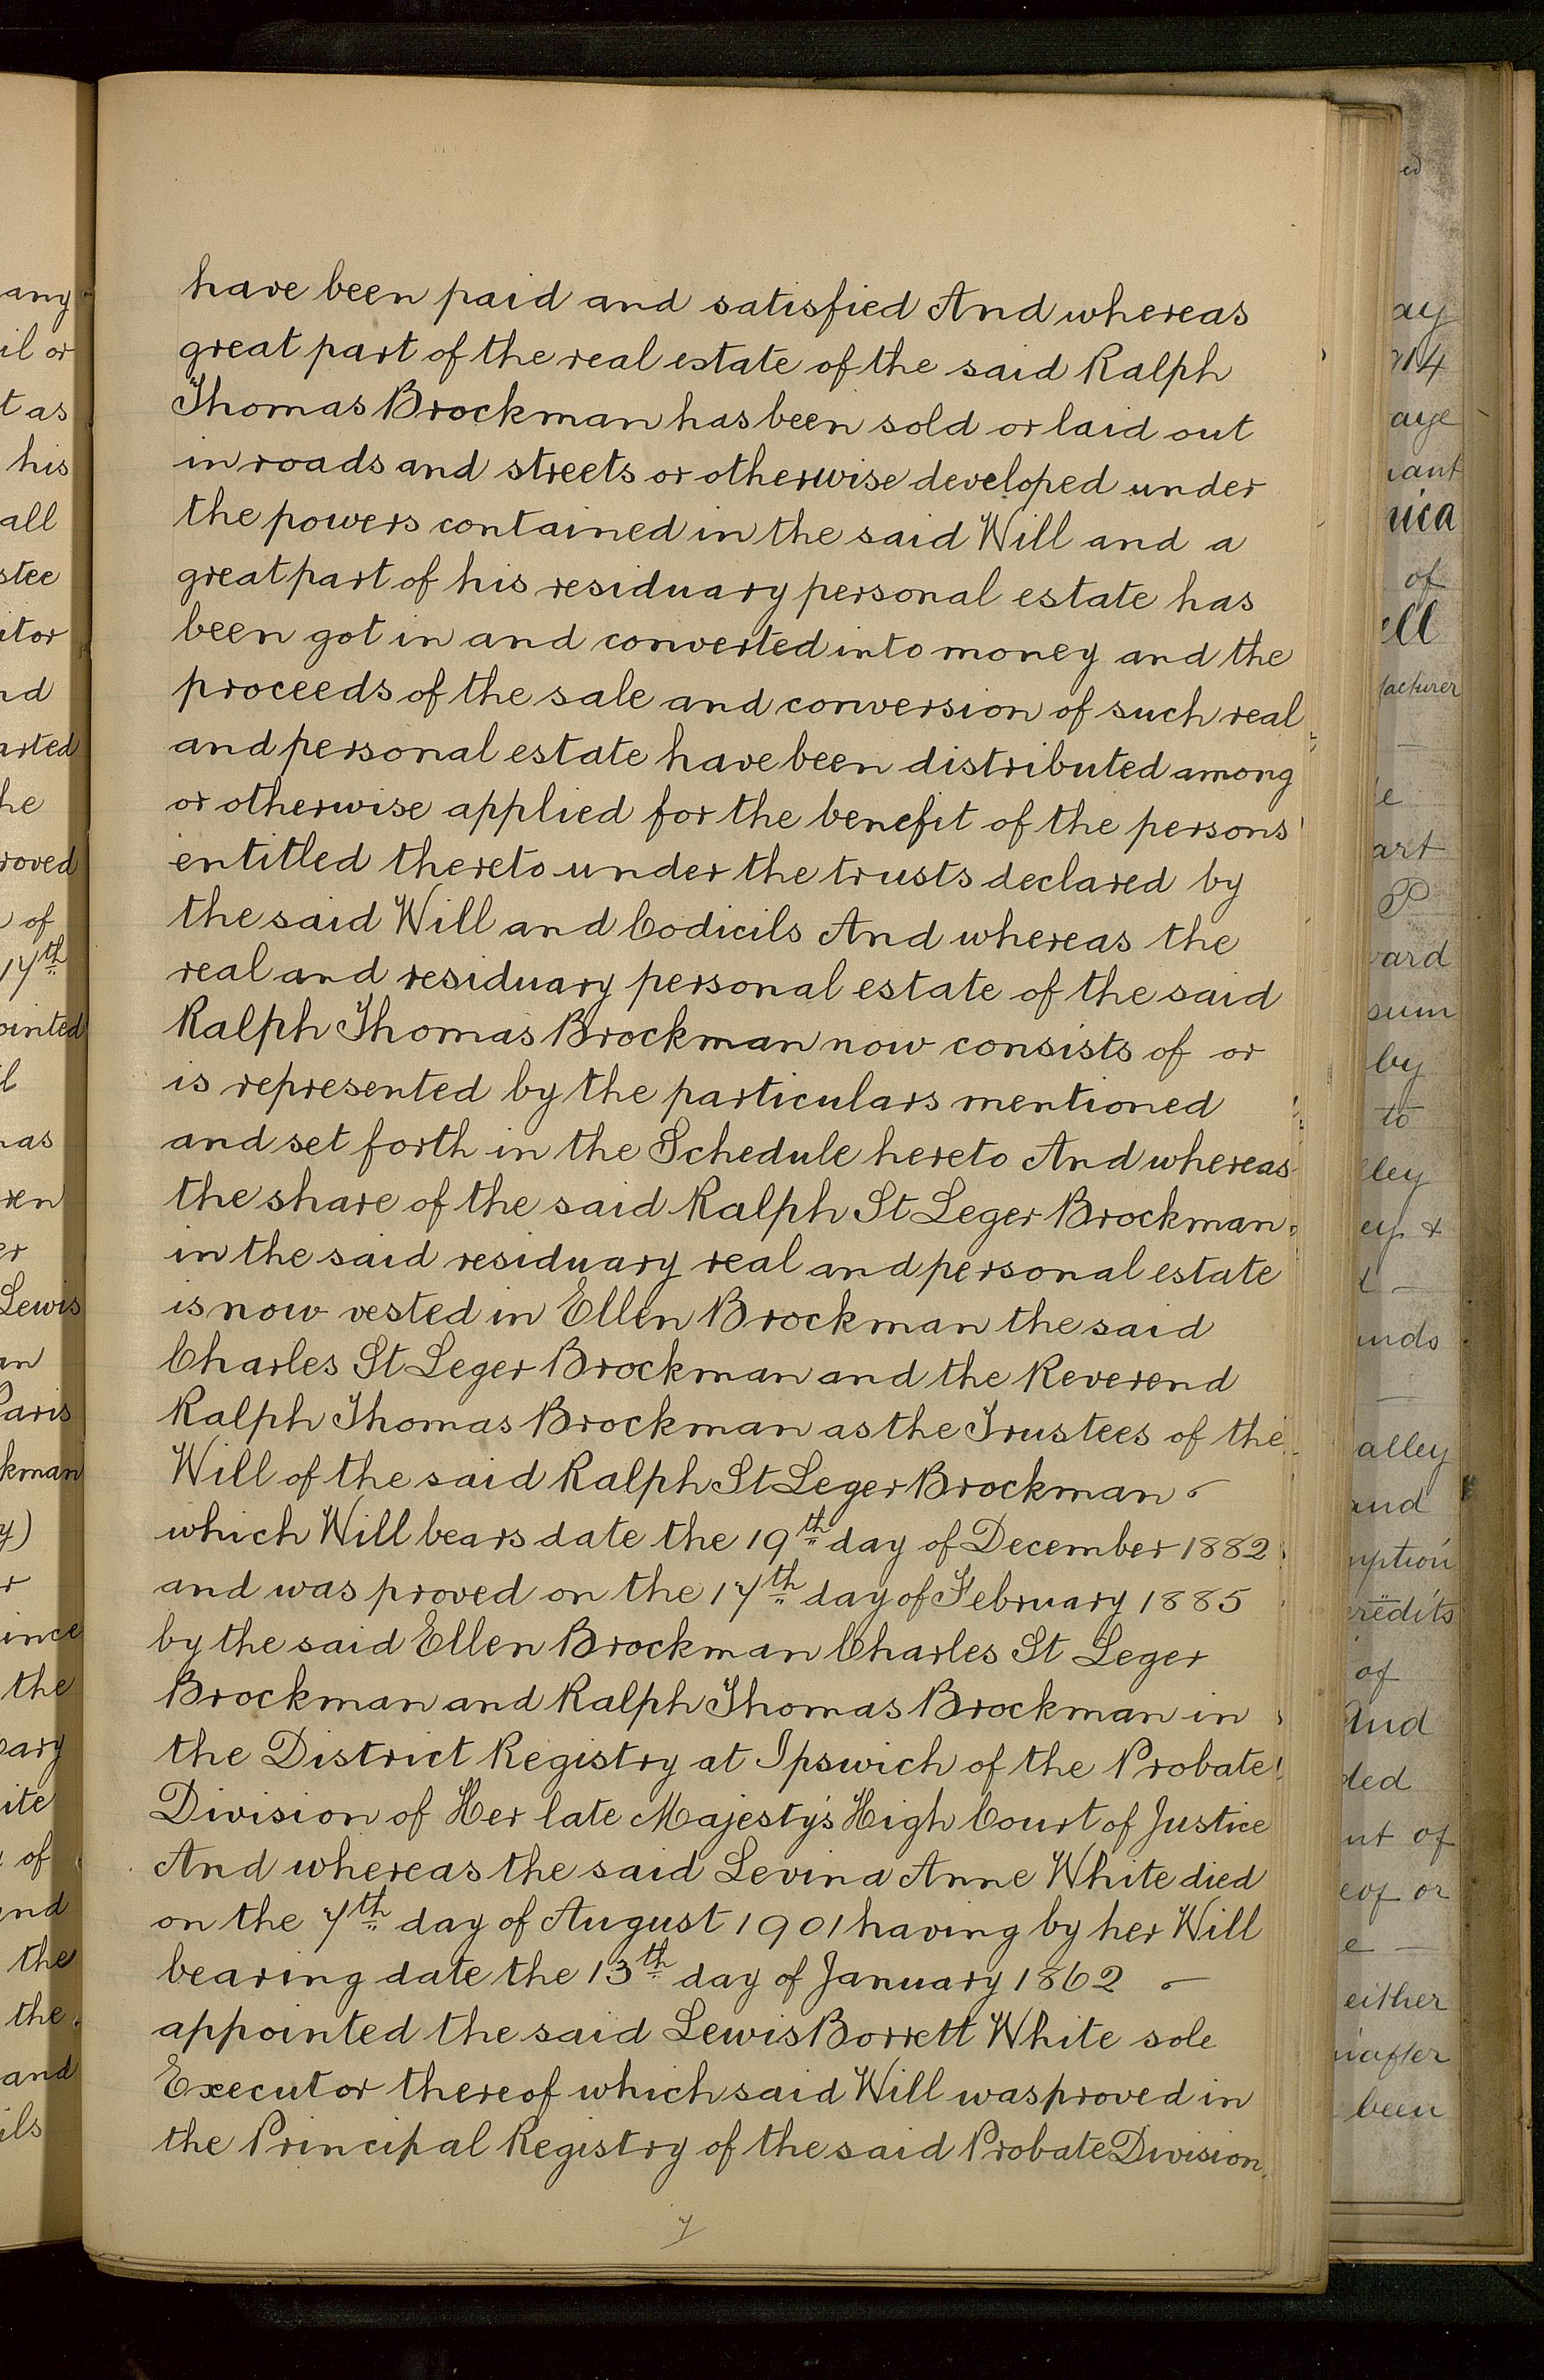 have been paid and satisfied And whereas
great part of the real estate of the said Ralph
Thomas Brockman has been sold or laid out
in roads and streets or otherwise developed under
the powers contained in the said Will and a
great part of his residuary personal estate has
been got in and converted into money and the
proceeds of the sale and conversion of such real
and personal estate have been distributed among
or otherwise applied for the benefit of the persons
entitled thereto under the trusts declared by
the said Will and Codicils And whereas the
real and residuary personal estate of the said
Ralph Thomas Brockman now consists of or
is represented by the particulars mentioned
and set forth in the Schedule hereto And whereas
the share of the said Ralph St Leger Brockman
in the said residuary real and personal estate
is now vested in Ellen Brockman the said
Charles St Leger Brockman and the Reverend
Ralph Thomas Brockman as the Trustees of the
Will of the said Ralph St Leger Brockman
which Will bears date the 19th day of December 1882
and was proved on the 17th day of February 1885
by the said Ellen Brockman Charles St Leger
Brockman and Ralph Thomas Brockman in
the District Registry at Ipswich of the Probate
Division of Her late Majesty's High Court of Justice
And whereas the said Levina Anne White died
on the 7th day of August 1901 having by her Will
bearing date the 13th day of January 1862
appointed the said Lewis Borrett White sole
Executor thereof which said Will was proved in
the Principal Registry of the said Probate Division
7